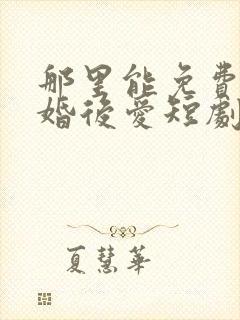 那里能免費
婚後愛短劇
夏慧華